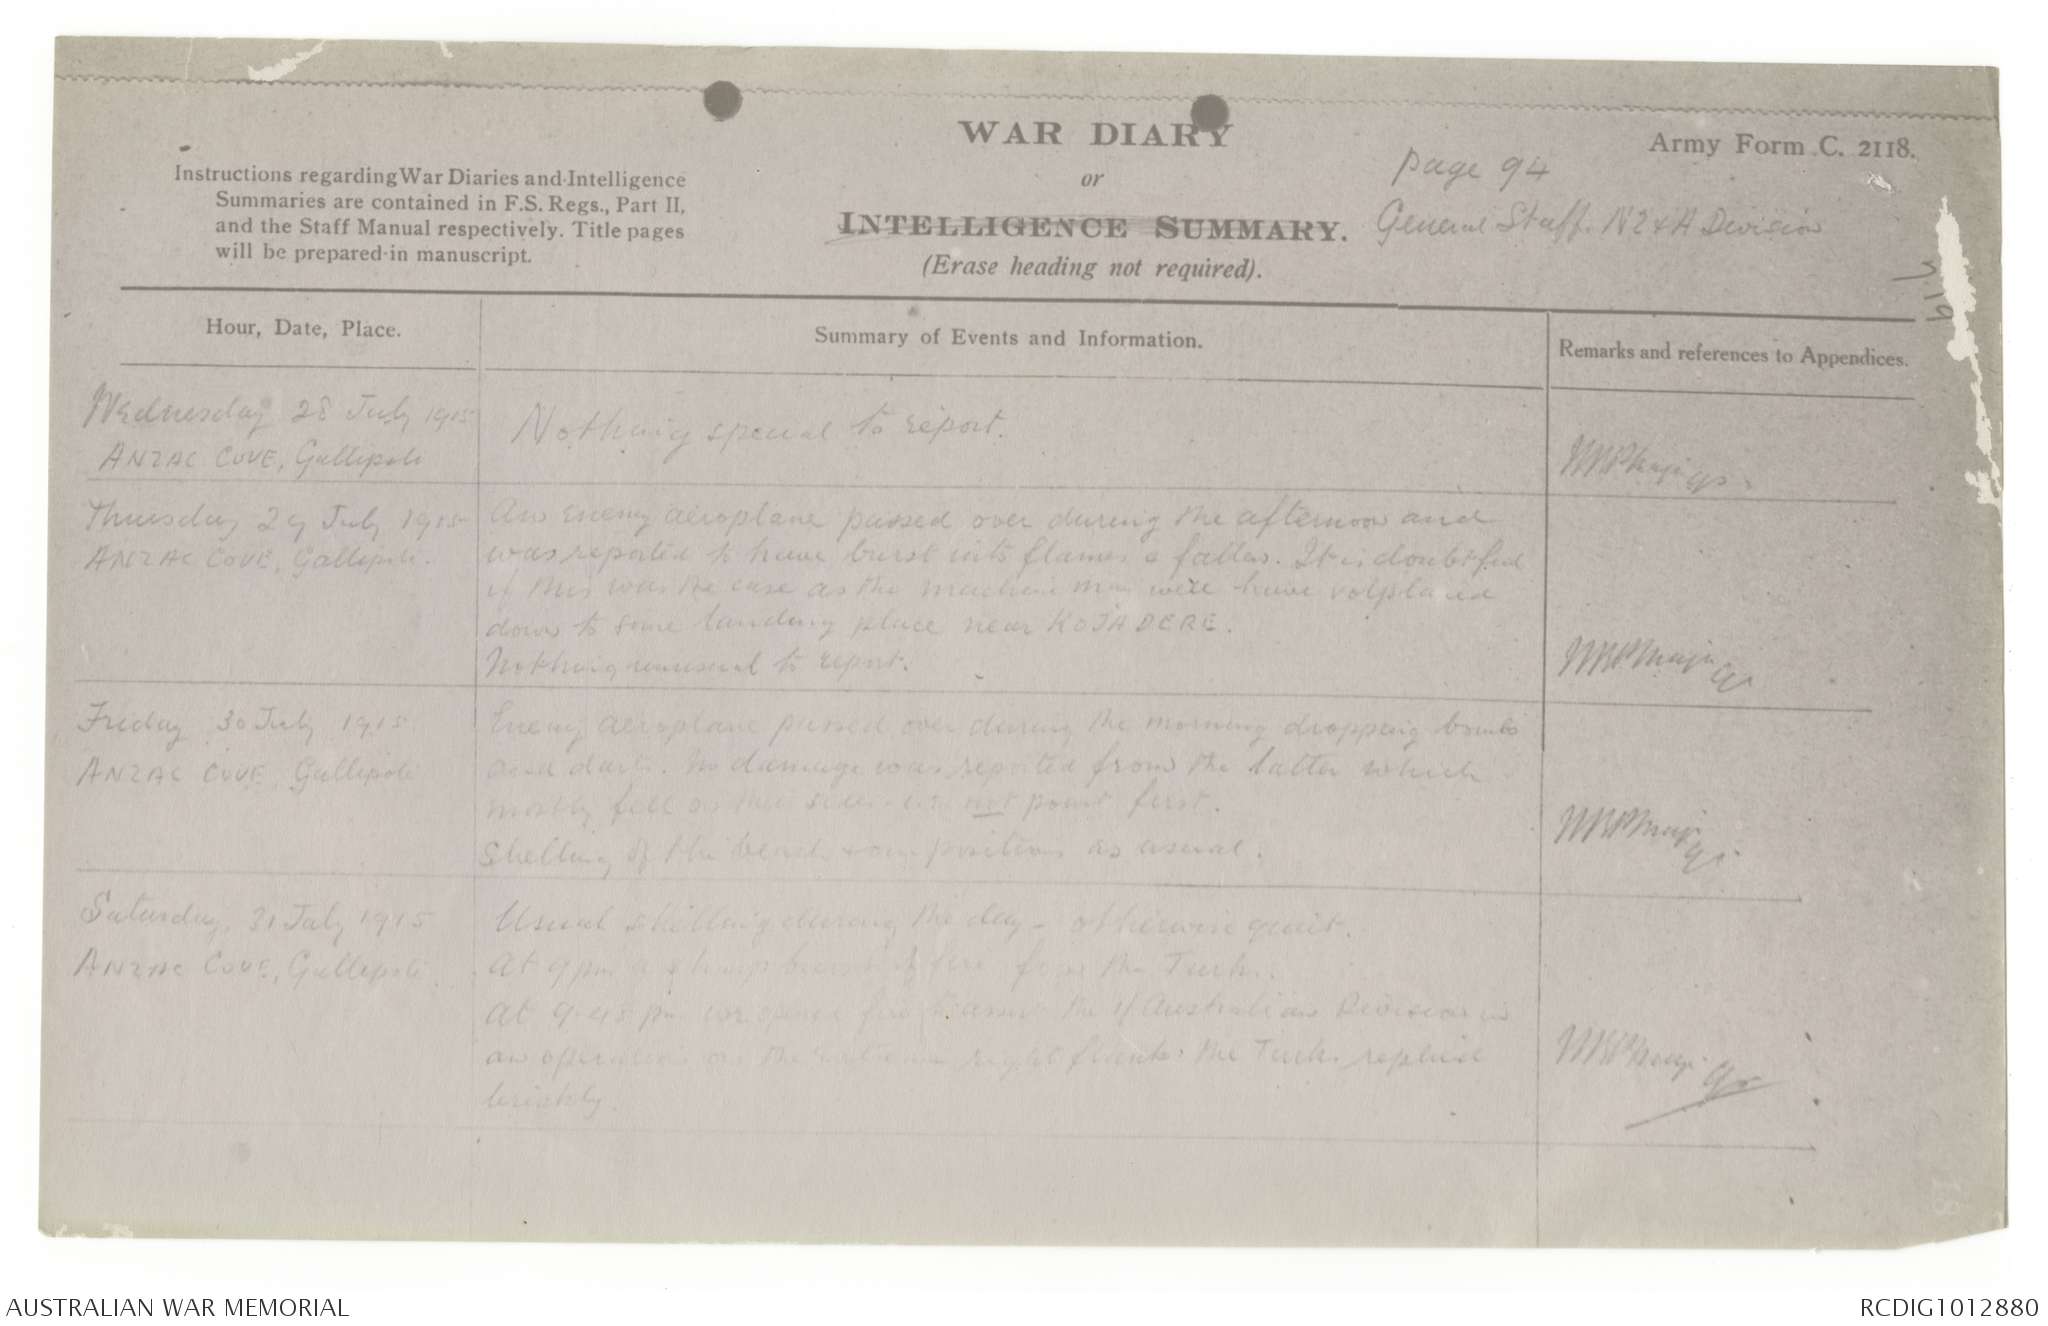 WAR DIARY
or
INTELLIGENCE SUMMARY.
(Erase heading not required).
Army Form C. 2118.
page 94
General Staff. NZ & A Division
Instructions regarding War Diaries and Intelligence
Summaries are contained in F.S. Regs., Part II,
and the Staff Manual respectively. Title pages
will be prepared in manuscript.
Hour, Date, Place.
Summary of Events and Information.
Remarks and references to Appendices.
Wednesday 28 July 1915
ANZAC COVE, Gallipoli
Nothing special to report.
Thursday 29 July 1915
ANZAC COVE, Gallipoli.
An enemy aeroplane passed over during the afternoon and
was reported to have burst into flames & fallen. It is doubtful
if this was the case as the machine may well have volplaned
down to some landing place near KOJA DERE.
Nothing unusual to report.
Friday 30 July 1915
ANZAC COVE, Gallipoli
Enemy aeroplane passed over during the morning dropping bombs
and darts. No damage was reported from the latter which
mostly fell on their sides - i.e. not point first.
Shelling of the beach & our positions as usual.
Saturday, 31 July 1915
ANZAC COVE, Gallipoli.
Usual shelling during the day - otherwise quiet.
At 9 pm a sharp burst of fire from the Turks.
At 9.45 pm we opened fire to assist the 1/ Australian Division in
an operation on the extreme right flank: the Turks replied
briskly.
AUSTRALIAN WAR MEMORIAL
RCDIG1012880